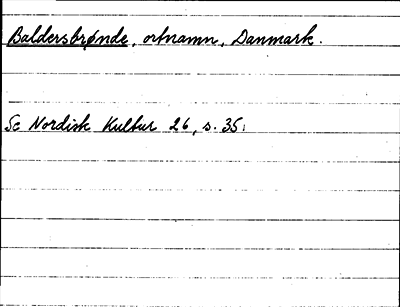 Baldersbrønde, ortnamn, Danmark.
Se Nordisk Kultur 26, s. 35.